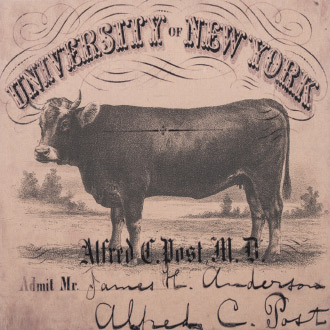 UNIVERSITY OF NEW YORK
Alfred C. Post M. D.
Admit Mr. James H. Anderson
Alfred C. Post